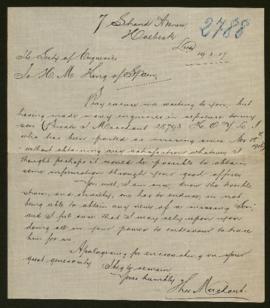 7 Strand Avenue
2788
Holbeck
Leeds
To Secty of Enquiries
To H. M. King of Spain
Pray excuse me writing to you, but
having made many enquiries in reference to my
son (Private J Merchant
who has been posted as missing since Nov
without obtaining any satisfaction whatever I
thought perhaps it would be possible to obtain
some information through your good offices
You will I am sure know the trouble
strain, and anxiety, one has to endure in not
being able to obtain any news of a missing Son
and I feel sure that I may rely upon your
doing all in your power to endeavour to trace
him for us
Apologising for encroaching on your
good generosity I beg to remain
yours humbly
Merchant